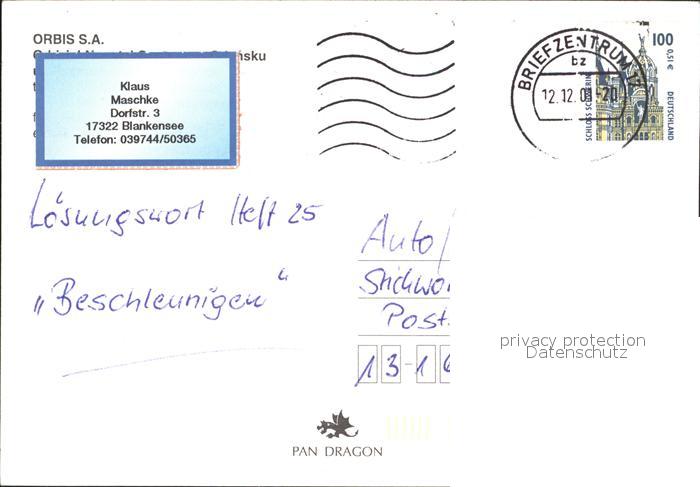 ORBIS S.A.
Klaus
Maschke
Dorfstr. 3
17322 Blankensee
Telefon: 039744/50365
BRIEFZENTRUM 17
bz
12.12.01-20
100
0,51€
SCHLOSS
DEUTSCHLAND
Lösungswort Heft 25
„Beschleunigen“
Auto
Stichwo
Post
13-1
privacy protection
Datenschutz
PAN DRAGON